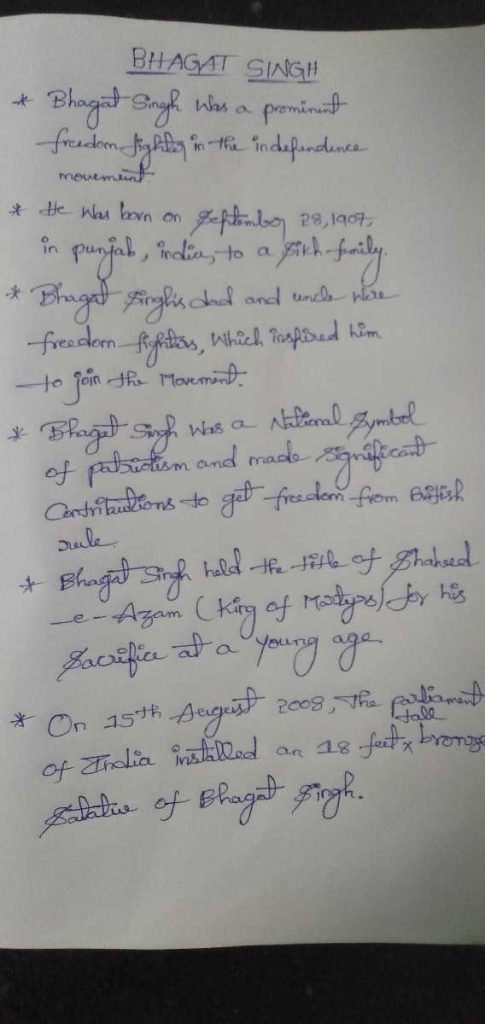 BHAGAT SINGH
* Bhagat Singh was a prominent
freedom fighter in the independence
movement.
* He was born on September 28, 1907,
in punjab, india, to a Sikh family.
* Bhagat Singh's dad and uncle were
freedom fighters, which inspired him
to join the Movement.
* Bhagat Singh was a National Symbol
of patriotism and made significant
Contributions to get freedom from British
rule.
* Bhagat Singh held the title of Shaheed
-e-Azam (King of Martyrs) for his
Sacrifice at a young age.
* On 15th August 2008, The parliament
of India installed an 18 feet x tall bronze
Satatue of Bhagat Singh.